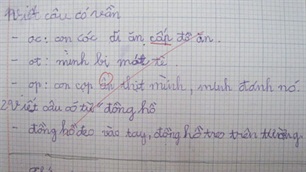 Viết câu có vần
- oc: con cóc đi ăn cắp đồ ăn.
- ot: mình bị mót tè.
- op: con cọp ăn thịt mình, mình đánh nó.
2. Viết câu có từ "đồng hồ
- đồng hồ đeo vào tay, đồng hồ treo trên tường.